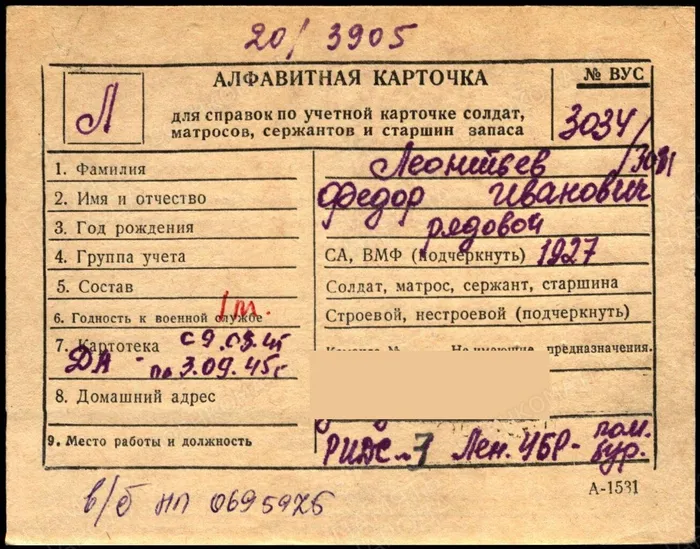 20/3905
АЛФАВИТНАЯ КАРТОЧКА
№ ВУС
Л
для справок по учетной карточке солдат,
матросов, сержантов и старшин запаса
3034/3031
1. Фамилия Леонтьев
2. Имя и отчество Федор Иванович
3. Год рождения рядовой
4. Группа учета СА, ВМФ (подчеркнуть) 1927
5. Состав Солдат, матрос, сержант, старшина
6. Годность к военной службе Строевой, нестроевой (подчеркнуть)
1т.
7. Картотека с 9.03.45 Не имеющие предназначения.
ДА - по 3.09.45г
8. Домашний адрес
9. Место работы и должность Лен. УБР- пом. бур.
А-1531
в/б НП 0695925